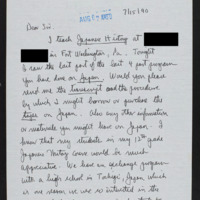 7/25/90
Dear Sir,
I teach Japanese History at
in Fort Washington, Pa. Tonight
I saw the last part of the last 4 part program
you have done on Japan. Would you please
send me the transcript and the procedure
by which I might borrow or purchase the
tapes on Japan. Also any other information
or materials you might have on Japan. I
know that my students in my 12th grade
Japanese History course would be much
appreciative. We have an exchange program
with a high school in Tochigi, Japan which
is one reason we are so interested in the